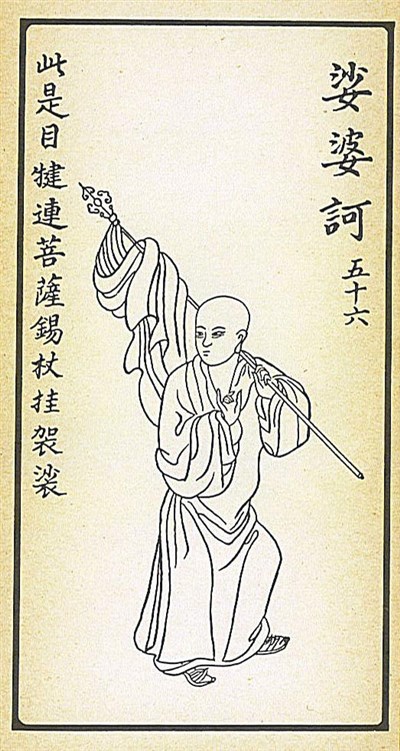 娑婆訶 五十六
此是目犍連菩薩錫杖挂袈裟